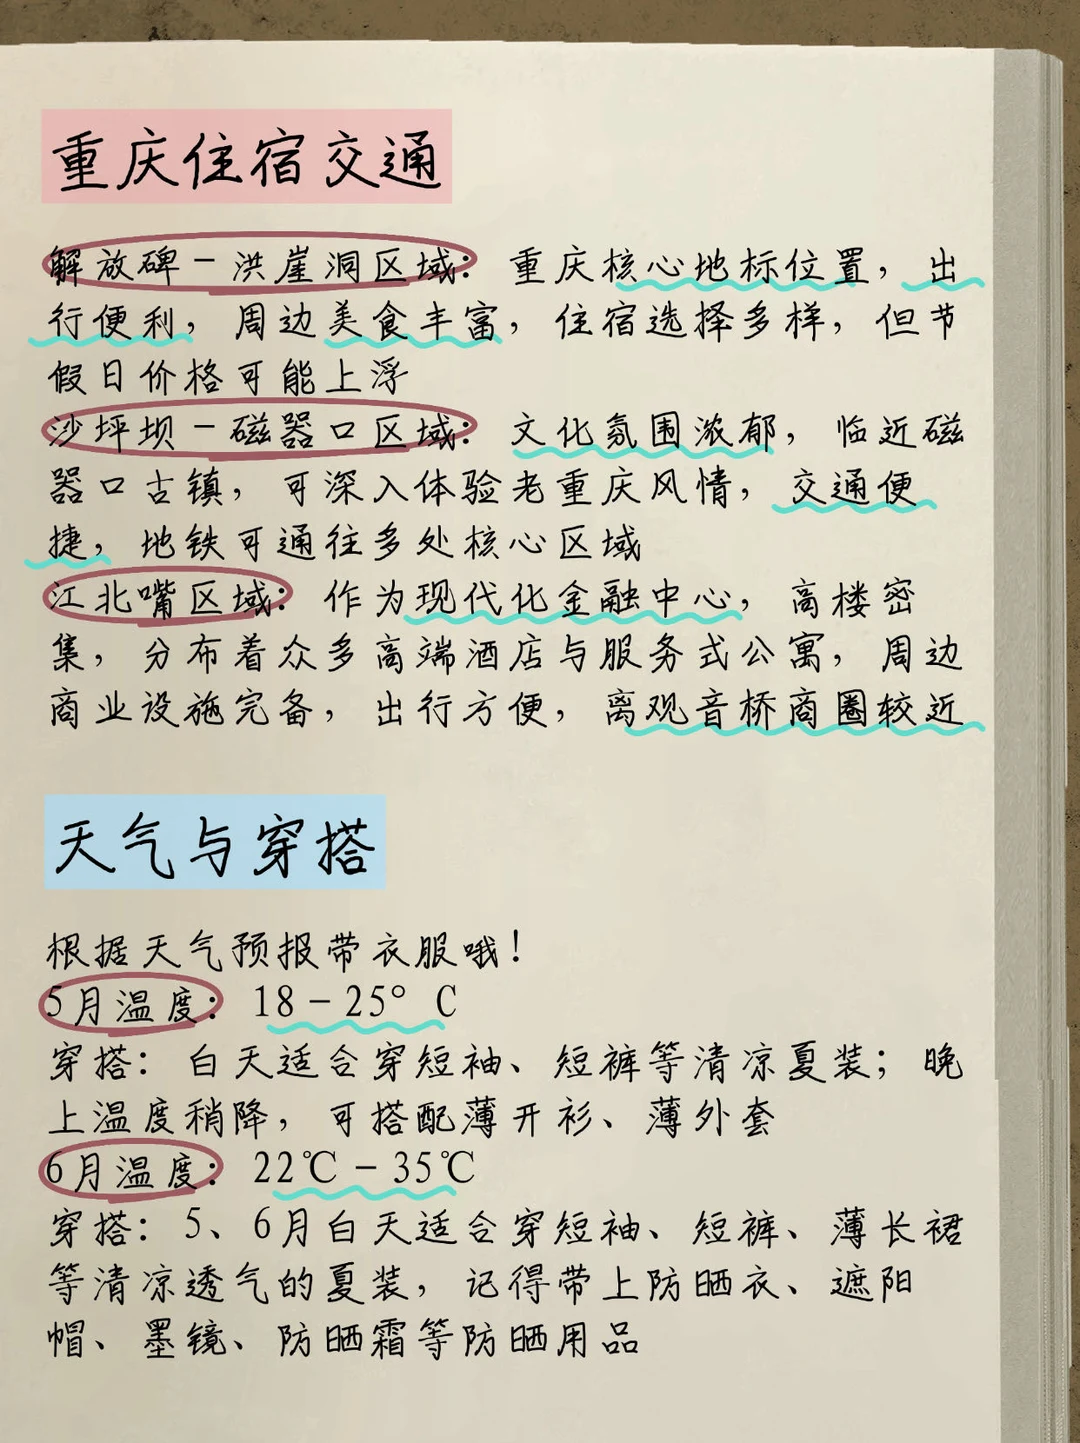 重庆住宿交通
解放碑－洪崖洞区域：重庆核心地标位置，出
行便利，周边美食丰富，住宿选择多样，但节
假日价格可能上浮
沙坪坝－磁器口区域：文化氛围浓郁，临近磁
器口古镇，可深入体验老重庆风情，交通便
捷，地铁可通往多处核心区域
江北嘴区域：作为现代化金融中心，高楼密
集，分布着众多高端酒店与服务式公寓，周边
商业设施完备，出行方便，离观音桥商圈较近
天气与穿搭
根据天气预报带衣服哦！
5月温度：18－25° C
穿搭：白天适合穿短袖、短裤等清凉夏装；晚
上温度稍降，可搭配薄开衫、薄外套
6月温度：22℃－35℃
穿搭：5、6月白天适合穿短袖、短裤、薄长裙
等清凉透气的夏装，记得带上防晒衣、遮阳
帽、墨镜、防晒霜等防晒用品